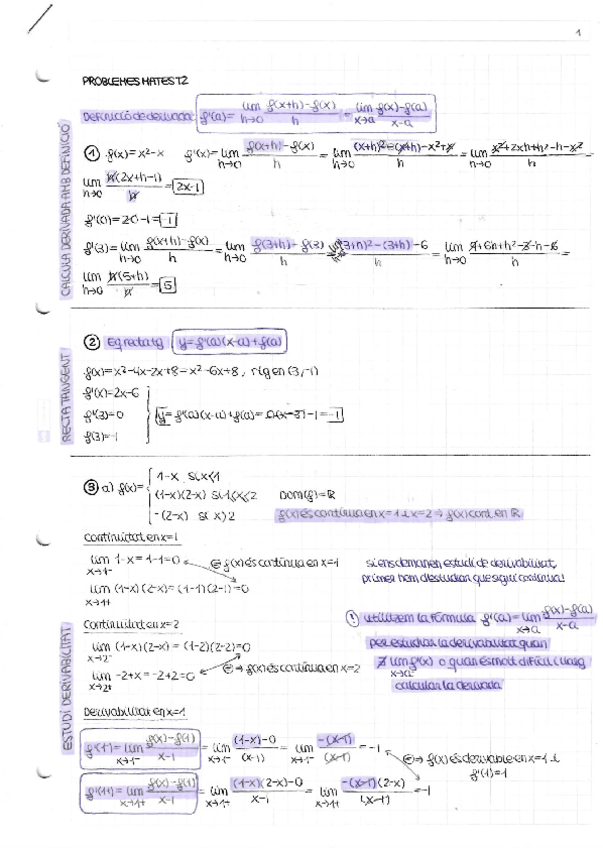 1
PROBLEMES MATES T2
Definició de derivada: f'(a)= lim h→0 f(x+h)-f(x) / h = lim x→a f(x)-f(a) / x-a
CALCULA DERIVADA AMB DEFINICIÓ
① f(x)=x²-x f'(x)= lim h→0 f(x+h)-f(x) / h = lim h→0 (x+h)²-(x+h)-x²+x / h = lim h→0 x²+2xh+h²-h-x² / h
lim h→0 h(2x+h-1) / h = 2x-1
f'(0)=2·0-1=-1
f'(3)= lim h→0 f(x+h)-f(x) / h = lim h→0 f(3+h)-f(3) / h = (3+h)²-(3+h)-6 / h = lim h→0 9+6h+h²-3-h-6 / h =
lim h→0 h(5+h) / h = 5
RECTA TANGENT
② Eq recta tg y=f'(a)(x-a)+f(a)
f(x)=x²-4x-2x+8=x²-6x+8, r tg en (3,-1)
f'(x)=2x-6
f'(3)=0 y=f'(a)(x-a)+f(a)=0(x-3)-1=-1
f(3)=-1
ESTUDI DERIVABILITAT
③ a) f(x)=
1-x si x<1
(1-x)(2-x) si 1≤x≤2 Dom(f)=ℝ
-(2-x) si x>2 f(x) és contínua en x=1 i x=2 → f(x) cont. en ℝ
Continuïtat en x=1
lim x→1- 1-x=1-1=0 = f(x) és contínua en x=1
lim x→1+ (1-x)(2-x)=(1-1)(2-1)=0
si ens demanen estudi de derivabilitat,
primer hem d'estudiar que sigui contínua!
Continuïtat en x=2
lim x→2- (1-x)(2-x)=(1-2)(2-2)=0
lim x→2+ -2+x=-2+2=0 =⇒ f(x) és contínua en x=2
! utilitzem la fórmula f'(a)= lim x→a f(x)-f(a) / x-a
per estudiar la derivabilitat quan
∄ lim x→a f'(x) o quan és molt difícil i llarg
calcular la derivada
Derivabilitat en x=1
f'(1-)= lim x→1- f(x)-f(1) / x-1 = lim x→1- (1-x)-0 / (x-1) = lim x→1- -(x-1) / (x-1) = -1
=⇒ f(x) és derivable en x=1 i
f'(1)=1
f'(1+)= lim x→1+ f(x)-f(1) / x-1 = lim x→1+ (1-x)(2-x)-0 / x-1 = lim x→1+ -(x-1)(2-x) / (x-1) = -1